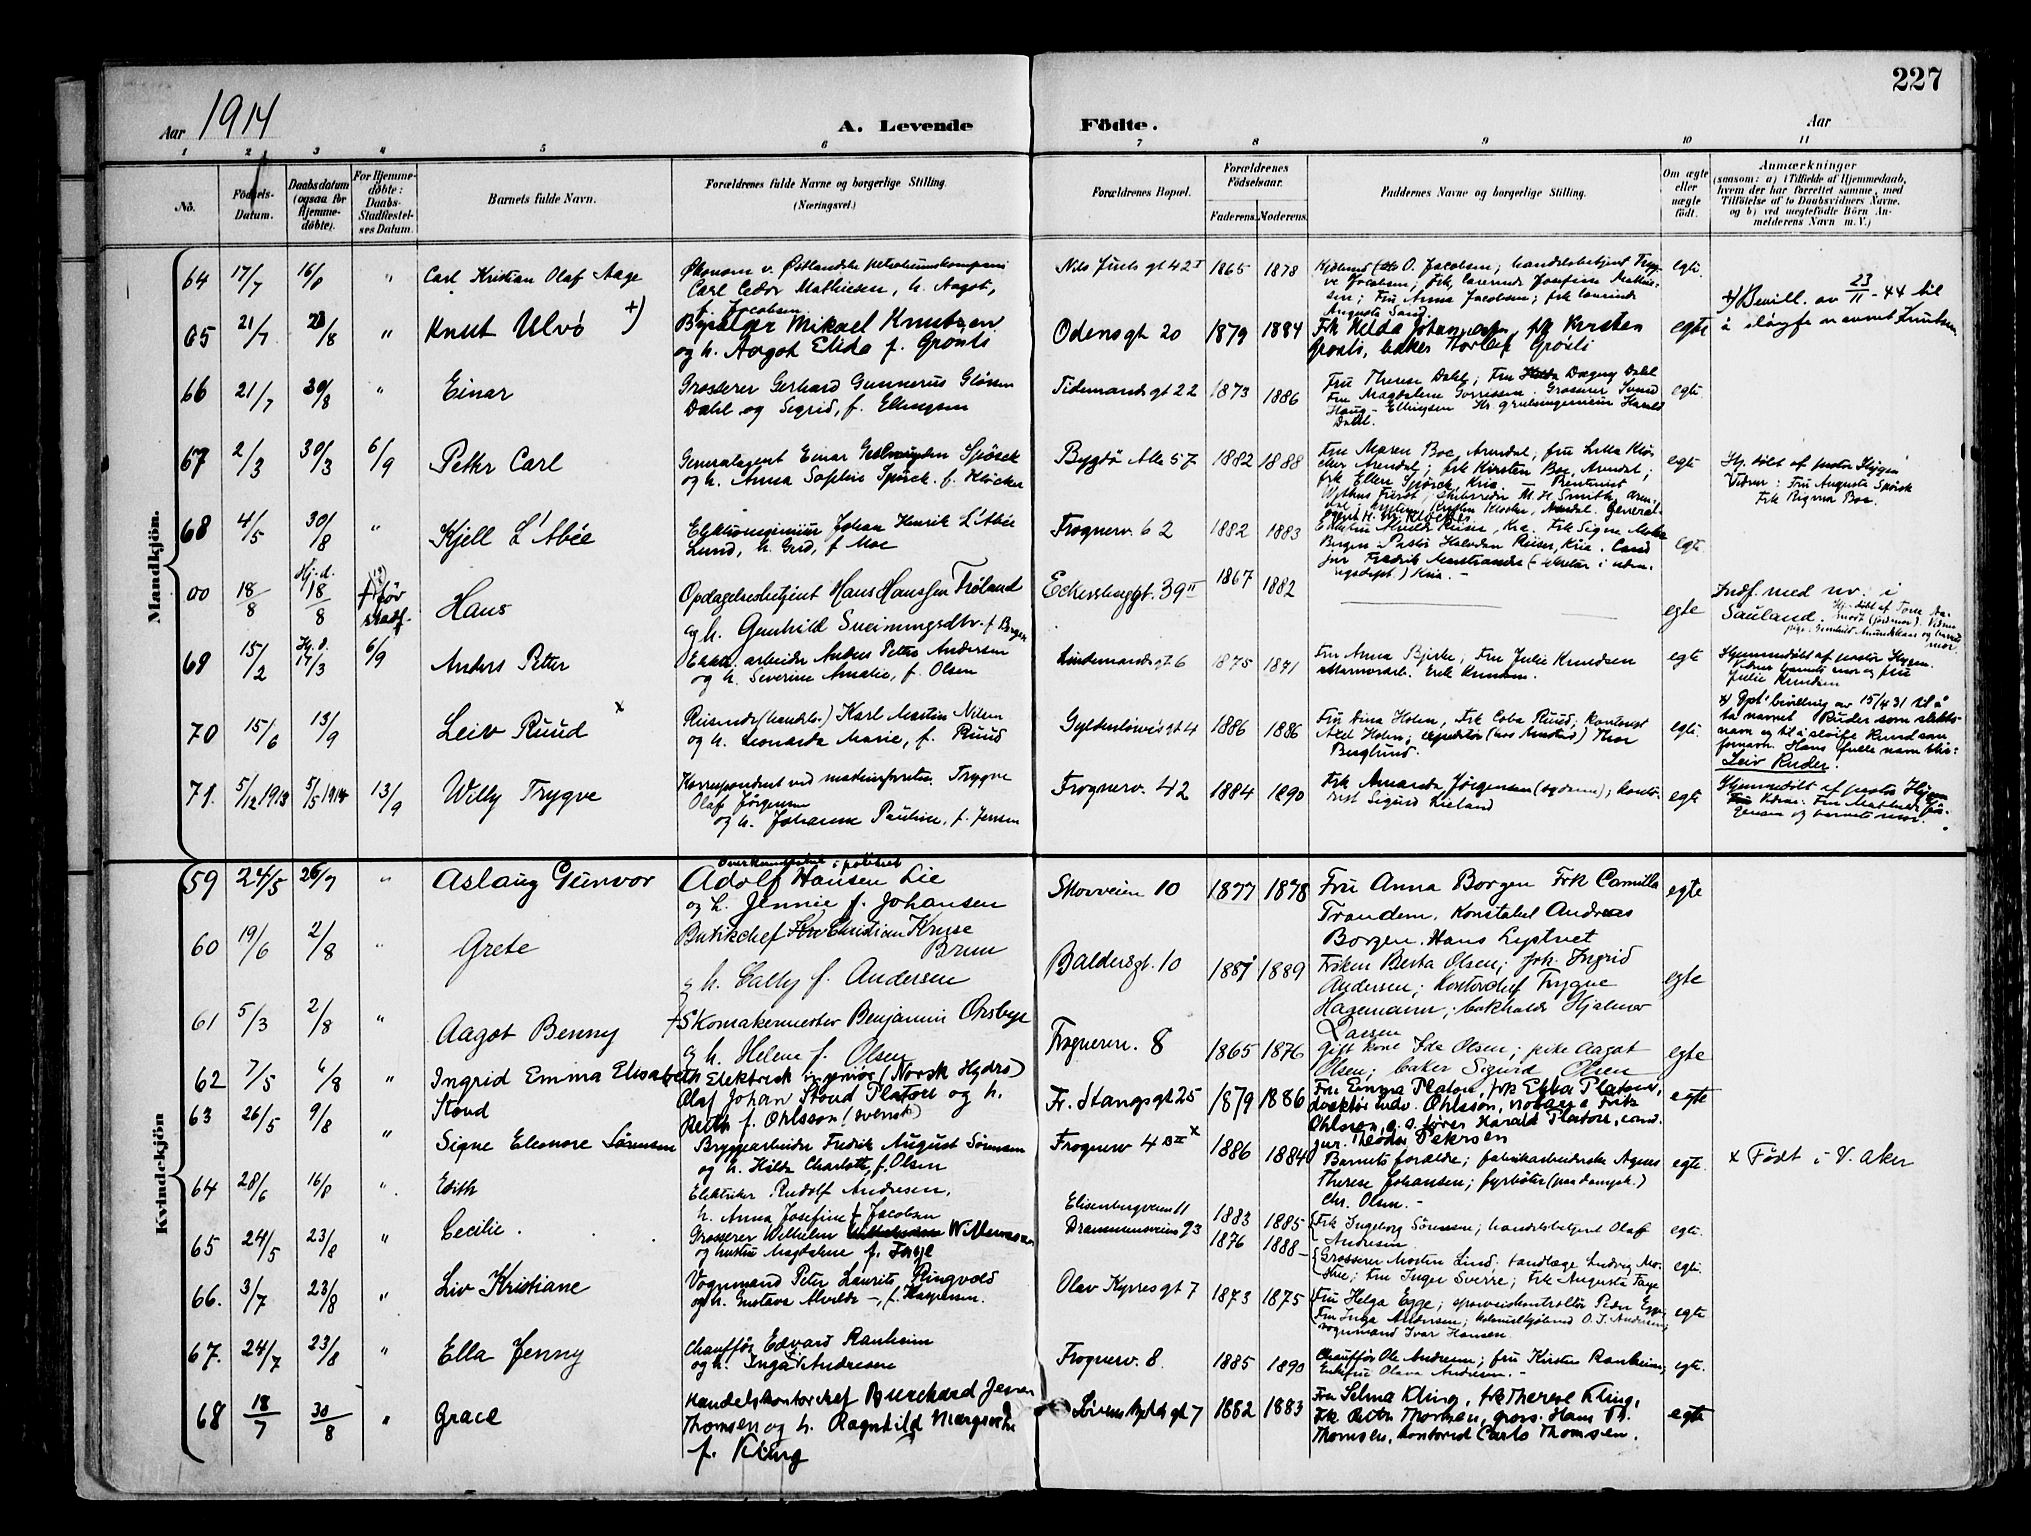 227
Aar 1914
A. Levende Födte.
Aar
1 2 3 4 5 6 7 8 9 10 11
No.
Födsels-Datum.
Daabsdatum (ogsaa for Hjemme-döbte).
For Hjemme-döbte: Daabs-Stadfæstel-ses Datum.
Barnets fulde Navn.
Forældrenes fulde Navne og borgerlige Stilling.
(Næringsvei.)
Forældrenes Bopæl.
Forældrenes Födselsaar.
Faderens. Moderens.
Faddernes Navne og borgerlige Stilling.
Om ægte eller uægte födt.
Anmærkninger
(saasom: a) i Tilfælde af Hjemmedaab,
hvem der har forrettet samme, med
Tilföielse af to Daabsvidners Navne.
og b) ved uegtefödte Börn An-
melderens Navn m. V.)
Mandkjön.
64 17/7 16/8 " Carl Kristian Olaf Aage
Økonom v. Østlandske petroleumskompani
Carl Cedor Mathiesen, h. Aagot,
f. Jacobsen
Nils Juels gt 42 I 1865 1878
O. Jacobsen; handelsbetjent Tryg-
ve Jacobsen; Frk. Josefine Mathie-
sen; Fru Anna Jacobsen; frk
Augusta Sand
egte.
65 21/7 23/8 " Knut Ulvö +)
Mikael Knutzen
og h. Aagot Elida f. Grønli
Odensgt 20 1879 1884
Frk Hilda Johannesen, frk Kirsten
Grønli, baker Thorleif Grønli
egte
+) Bevill. av 23/11 - 44 til
å sløyfe navnet Knutsen
66 21/7 30/8 " Einar
Grosserer Gerhard Gunnerus Gløsen
Dahl og Sigrid, f. Ellingsen
Tidemandsgt 22 1873 1886
Fru Therese Dahl; Fru Dagny Dahl
Fru Magdalene Gorrissen. Grosserer Svend
Haug-Ellingsen Hr. grubeingeniein Harald
Dahl.
egte
67 2/3 30/3 6/9 Petter Carl
Generalagent Einar Spörck
og h. Anna Sophie Spörck. f. Klöcker
Bygdö Alle 57 1882 1888
Fru Maren Boe, Arendal, fru Lilla Klö-
cker Arendal; frk Kirsten Boe, Arendal;
frk Ellen Spörck, Kria - Rentenist
skibsreder M. H. Smith, Aren-
dal
egte
Hj. döbt af pastor Hygen
Vidner: Fru Augusta Spörck
Frk Rigmor Boe.
68 4/5 30/8 " Kjell L'Abée
Johan Henrik L'Abée
Lund, h. Grid, f Moe
Frognerv. 62 1882 1883
Riiser, Kria. Frk Signe
Bergen - Pastor Halvdan Riiser, Kria. Cand
jur Fredrik (sekretær i uden-
rigsdept.) Kria. -
egte.
00 18/8 Hj.-d. 18/8
Hans
Opdagelsesbetjent Hans Hanssen Fröland
og h. Gunhild Sveinungsdtr. f Bergen
Eckersbergsgt. 39 II 1867 1882
egte
Indf. med nr. i
Sauland.
69 15/2 Hj. d. 17/3 6/9 Anders Petter
arbeider Anders Petter Andersen
og h. Severine Amalie, f. Olsen
Lindemansgt 6 1875 1871
Fru Anna Bjerke, Fru Julie Knudsen
Marmorarb. Erik Knudsen.
egte
Hjemmedöbt af pastor Hygen.
Vidner barnets mor og fru
Julie Knudsen
70 15/6 13/9 Leiv Ruud x
Reisende (handels.) Karl Martin Nilsen
og h. Leonarda Marie, f. Ruud
Gyldenløvesgt 4 1886 1886
Fru Dina Holm, Frk Coba Ruud; kontorist
Axel Holm; Thor
Berglund.
egte.
x) Dpt's bevilling av 15/4 31 til å
ta navnet Ruder som slekts-
navn og til å sløife Ruud som
fornavn. Hans fulle navn blir:
Leiv Ruder.
71. 5/12 1913 5/5 1914 13/9 Willy Trygve
Korrespondent ved maskinforretn. Trygve
Olaf Jørgensen
og h. Johanne Pauline, f. Jensen
Frognerv. 42 1884 1890
Frk Amanda Jørgensen; kontor-
ist Sigurd Lieland
egte
Hjemmedöbt af pastor Hygen
Vidner: Fru Mathilde Jör-
gensen og barnets mor.
Kvindekjön
59 24/5 26/7 " Aslaug Gunvor
Overkonstabel i politiet
Adolf Hansen Lie
og h. Jennie f. Johansen
Skovveien 10 1877 1878
Fru Anna Borgen Frk Camilla
Trandem. Konstabel Andreas
Borgen. Hans Lystvet
egte
60 19/6 2/8 " Grete
Butikchef Christian Kruse
Brun
og h. Cally f. Andersen
Baldersgt. 10 1881 1889
Frøken Berta Olsen; frk. Ingrid
Andersen; Kontorchef Trygve
Hagemann; bokholder Hjalmar
Larsen
egte
61 5/3 2/8 " Aagot Benny +
Skomakermester Benjamin Orsbye
og h. Helene f. Olsen
Frognervn. 8 1865 1876
Gift kone Ida Olsen; pike Aagot
Olsen; baker Sigurd Olsen
egte
62 7/5 6/8 " Ingrid Emma Elisabeth
Stoud
Elektrisk ingeniør (Norsk Hydro)
Olaf Johan Stoud Platou og h.
Ruth f. Ohlsson (svensk)
Fr. Stangsgt 25 1879 1886
Fru Emma Platou, frk Ebba Platou,
direktör Ludv. Ohlsson, Fritz
Ohlsson, o. s. fører Harald Platou, cand.
jur. Theodor Petersen
egte
63 26/5 9/8 " Signe Eleonore Sørensen
Bryggearbeider Fredrik August Sørensen
og h. Hilda Charlotte, f. Olsen
Frognerv 4 B II x 1886 1884
Barnets forældre; fabrikarbeiderske Agnes
Therese Johansen; fyrböter (paa dampsk.)
Chr. Olsen. -
egte.
x Födt i V. Aker
64 28/6 16/8 " Edith
Elektriker Rudolf Andresen,
h. Anna Josefine f Jacobsen
Elisenbergveien 11 1883 1885
Frk Ingeborg Sörensen; handelsbetjent Olaf
Andresen
egte.
65 24/5 23/8 " Cecilie.
Grosserer Wilhelm Willumsen
og hustru Magdalene f. Faye
Drammensveien 93 1876 1888
Grosserer Morten Lind; tandlæge Ludvig
Fru Inger Sverre; Frk Augusta Faye
egte.
66. 3/7 23/8 " Liv Kristiane
Vognmand Peter Laurits Ringvold
og h. Gustava Alvilde -, f. Kaspersen.
Olav Kyrresgt 7 1873 1875
Fru Helga Egge; sporveiskontrollör Peder Egge;
Fru Inga Andersen; kolonialhjörhand O. J. Andersen;
vognmand Ivar Hansen.
egte
67. 24/7 23/8 " Ella Jenny
Chauffør Edvard Ranheim
og h. Inga f. Andresen
Frognerv. 8. 1885 1890
Chauffør Ole Andresen; fru Kirsten Ranheim;
Enkefru Olava Andresen. -
egte.
68 18/7 30/8 " Grace
Handelskontorchef Burchard Jensen
Thomsen og h. Ragnhild Margrethe
f. Kling
gt 7 1882 1883
Fru Selma Kling, frk Therese Kling,
Frk Thomsen, gross. Hans B.
Thomsen, kontorist Carlo Thomsen.
egte